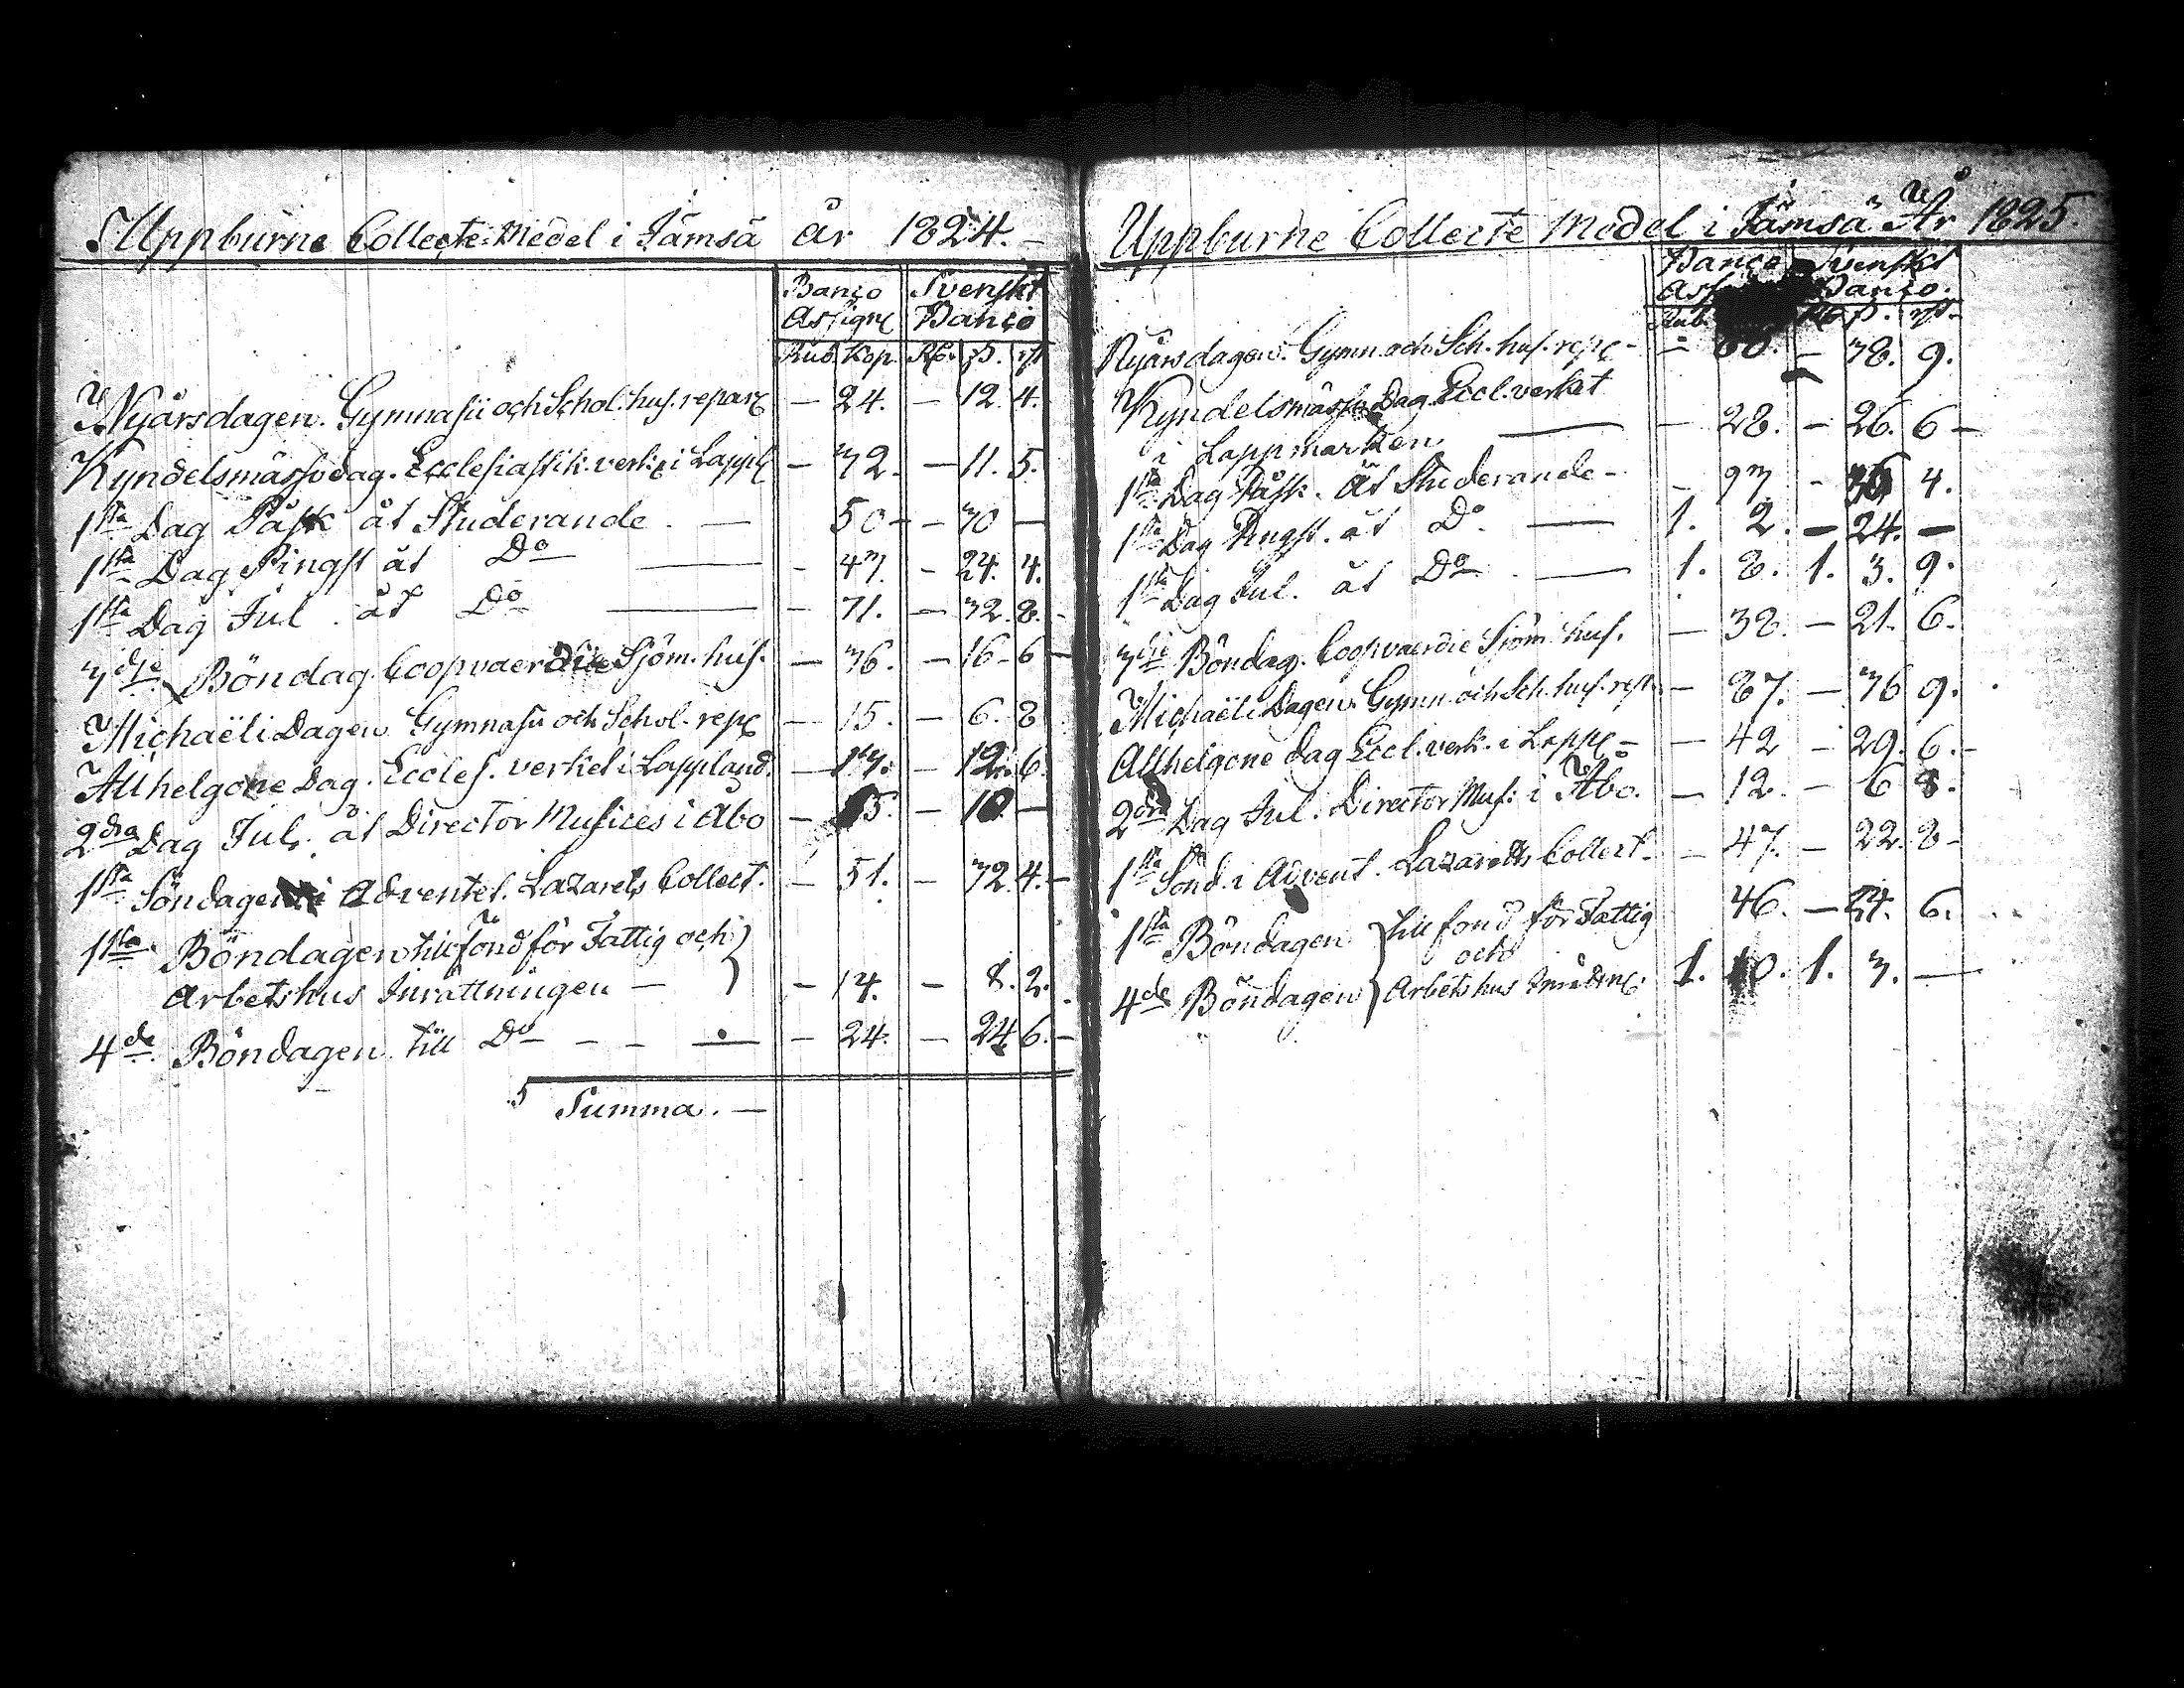 Uppburne Collecte Medel i Jämsä år 1824.
Banco Svenskt
Assigne Banco
Rub. Kop. Rd. ß. rst.
Nyårsdagen. Gymnasii och Schol. hus. repare — 24. — 12. 4.
Kyndelsmässodag. Ecclesiastik. verke i Lappl — 32. — 11. 5.
1sta Dag Påsk åt Studerande. — 50 — — 30 —
1sta Dag Pingst åt Do — 47. — 24. 4.
1sta Dag Jul. åt Do — 71. — 32. 8.
3dje Böndag. Coopvaerdie Sjöm. hus. — 36. — 16 — 6 —
Michaëli Dagen Gymnasii och Schol. repe — 15. — 6. 8
Allhelgone Dag. Eccles. verket i Lappland. — 17. — 12. 6.
2dra Dag Jul. åt Director Musices i Abo — 5. — 10. —
1sta Söndagen i Adventet. Lazarets Collect. — 51. — 32. 4. —
1sta Böndagen till fond för Fattig och
Arbetshus Inrättningen — — 14. — 8. 2.
4de Böndagen till Do — — — — 24. — 24 6. —
Summa. —
Uppburne Collecte Medel i Jämsä År 1825.
Banco Svenskt
Banco.
Rub. ß. rst.
Nyårsdagen. Gymn och Sch. hus. repe — — 60. — 38. 9.
Kyndelsmässo Dag. Eccl. verket
i Lappmarken — — 28. — 26. 6 —
1sta Dag Påsk. åt Studerande — — 93 — 4.
1sta Dag Pingst. åt Do. — 1. 2. — 24. —
1sta Dag Jul. åt Do. — 1. 8. 1. 3. 9.
3dje Böndag. Coopvaerdie Sjöm. hus. — 38. — 21. 6.
Michaëli Dagen. Gymn och Sch. hus. rep. — 87. — 36 9.
Allhelgone dag Eccl. verk. i Lappl — — 42 — 29. 6. —
2dra Dag Jul. Director Mus: i Åbo. — 12. — 6 8.
1sta Sönd. i Advent. Lazaretts Collect. — 47. — 22. 8 —
1sta Böndagen till fond för Fattig 46. — 24. 6.
och
4de Böndagen Arbetshus 1. 10. 1. 3. —